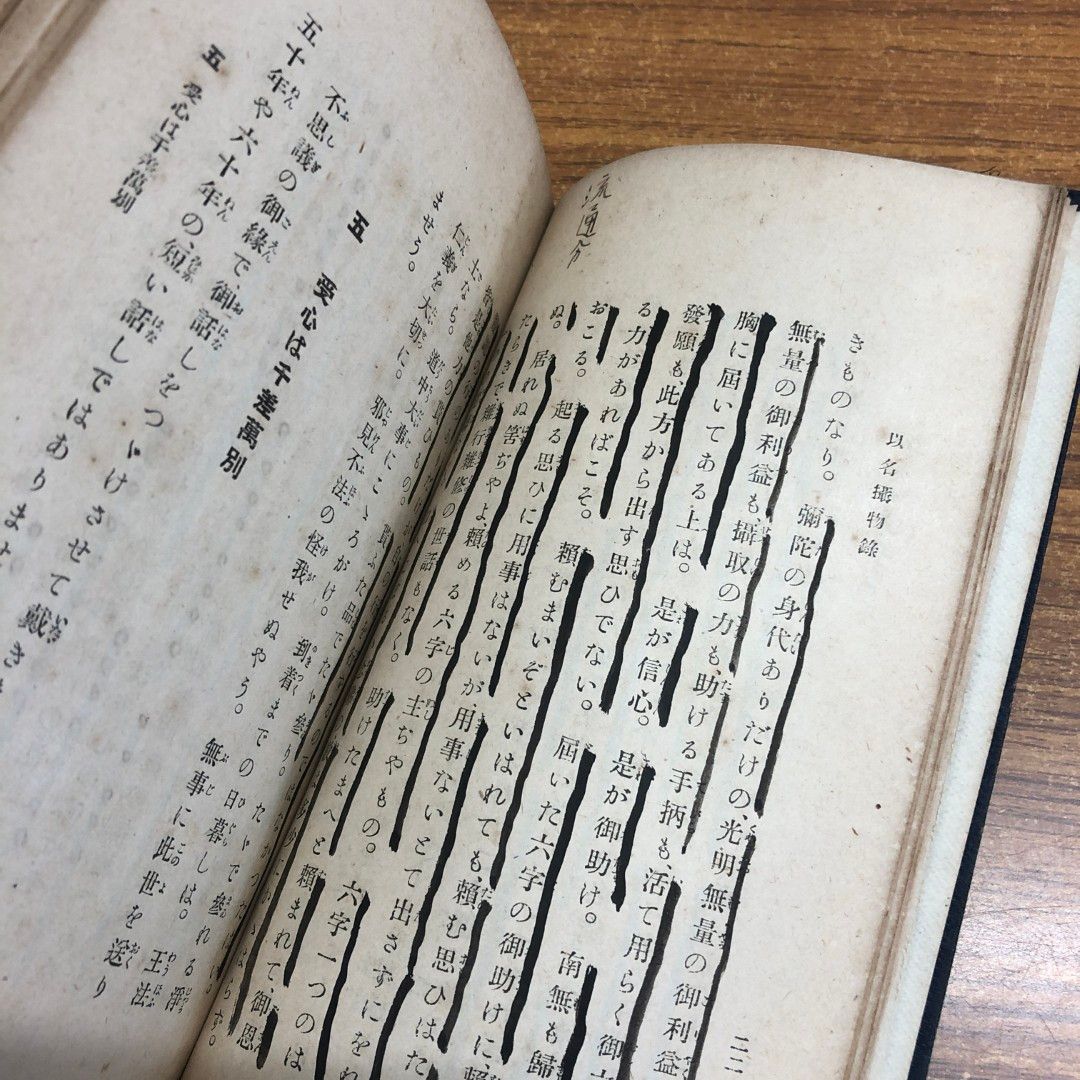 以名攝物錄
二二
流通分
きものなり。 彌陀の身代ありだけの、光明無量の御利益
無量の御利益も、攝取の力も、助ける手柄も、活て用らく御
胸に屆いてある上は。 是が信心。 是が御助け。 南無も歸
發願も、此方から出す思ひでない。 屆いた六字の御助けに、賴
る力があればこそ。 賴むまいぞといはれても、賴む思ひはた
おこる。 起る思ひに用事はないが、用事ないとて出さずにをれ
ぬ。 居れぬ筈ぢやよ、賴める六字の主ぢやもの。 六字一つのは
たらきで、雜行雜修の世話もなく。 助けたまへと賴まれて、御恩
士なら。 道中大事にこゝろがけ。 到着までの日暮しは。 王法
仁義を大切に。 邪見不法の怪我せぬやう。 無事に此世を送り
ませう。
五 受心は千差萬別
不思議の御緣で、御話しをつゞけさせて戴き
五十年や六十年の、短い話しではありま
五 受心は千差萬別